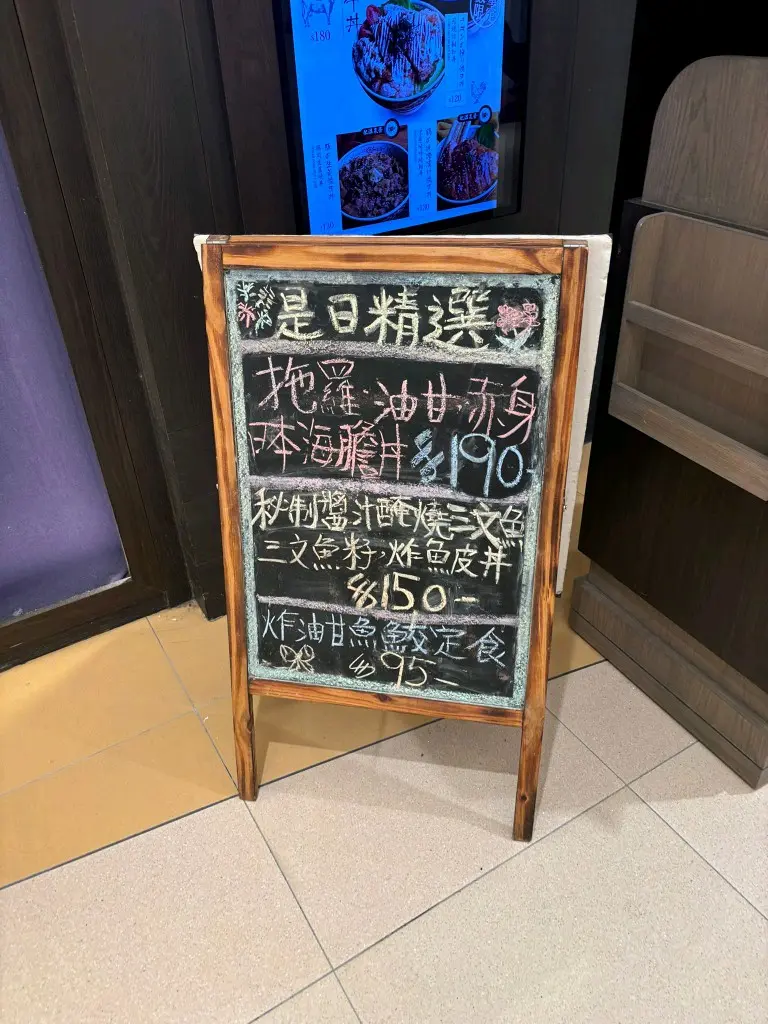 $180
丼
$120
$130
$120
是日精選
拖羅 油甘 赤身
日本海膽丼 $190-
秘制醬汁醃燒三文魚
三文魚籽,炸魚皮丼
$150-
炸油甘魚鮫定食
$95-